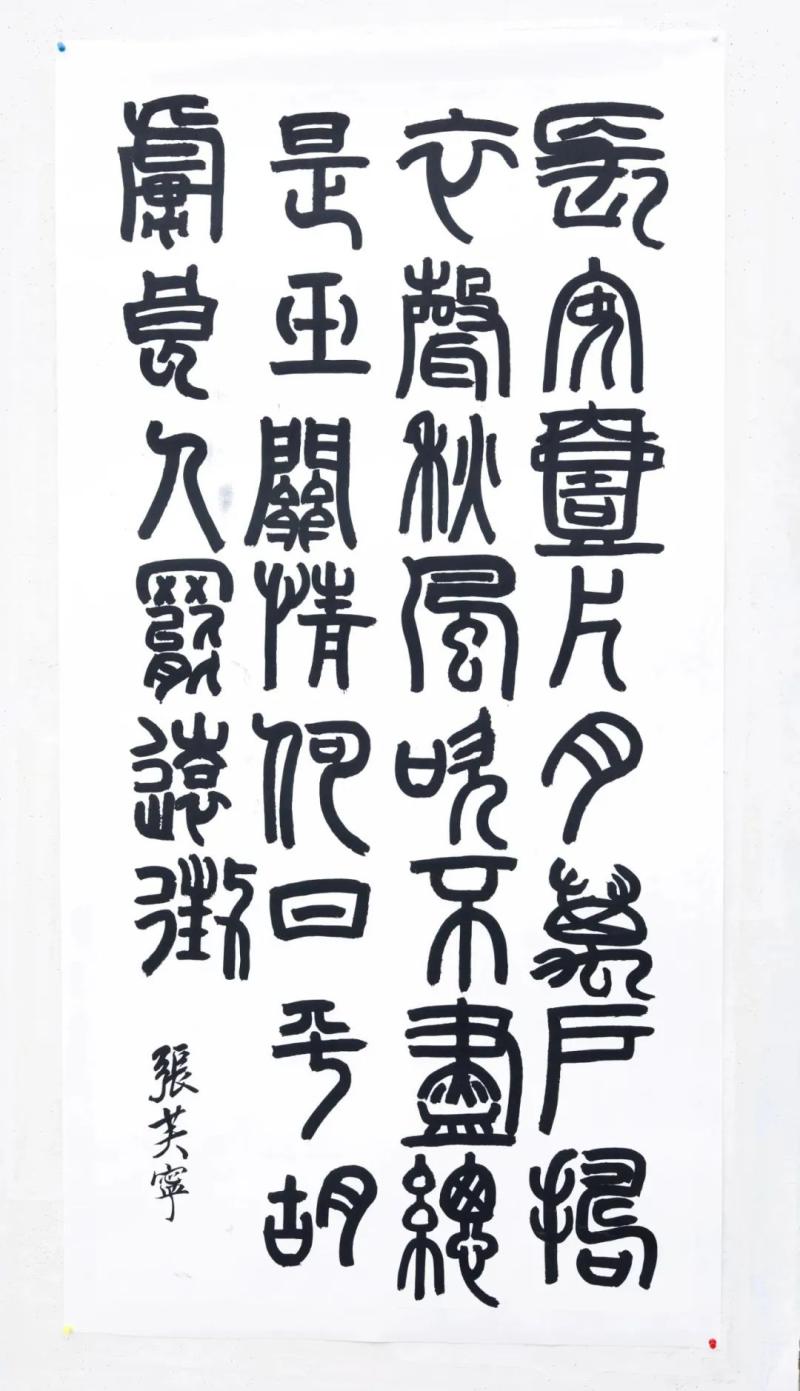 長安壹片月萬戶搗
衣聲秋風吹不盡總
是玉關情何日平胡
虜良人罷遠徵
張芙寧